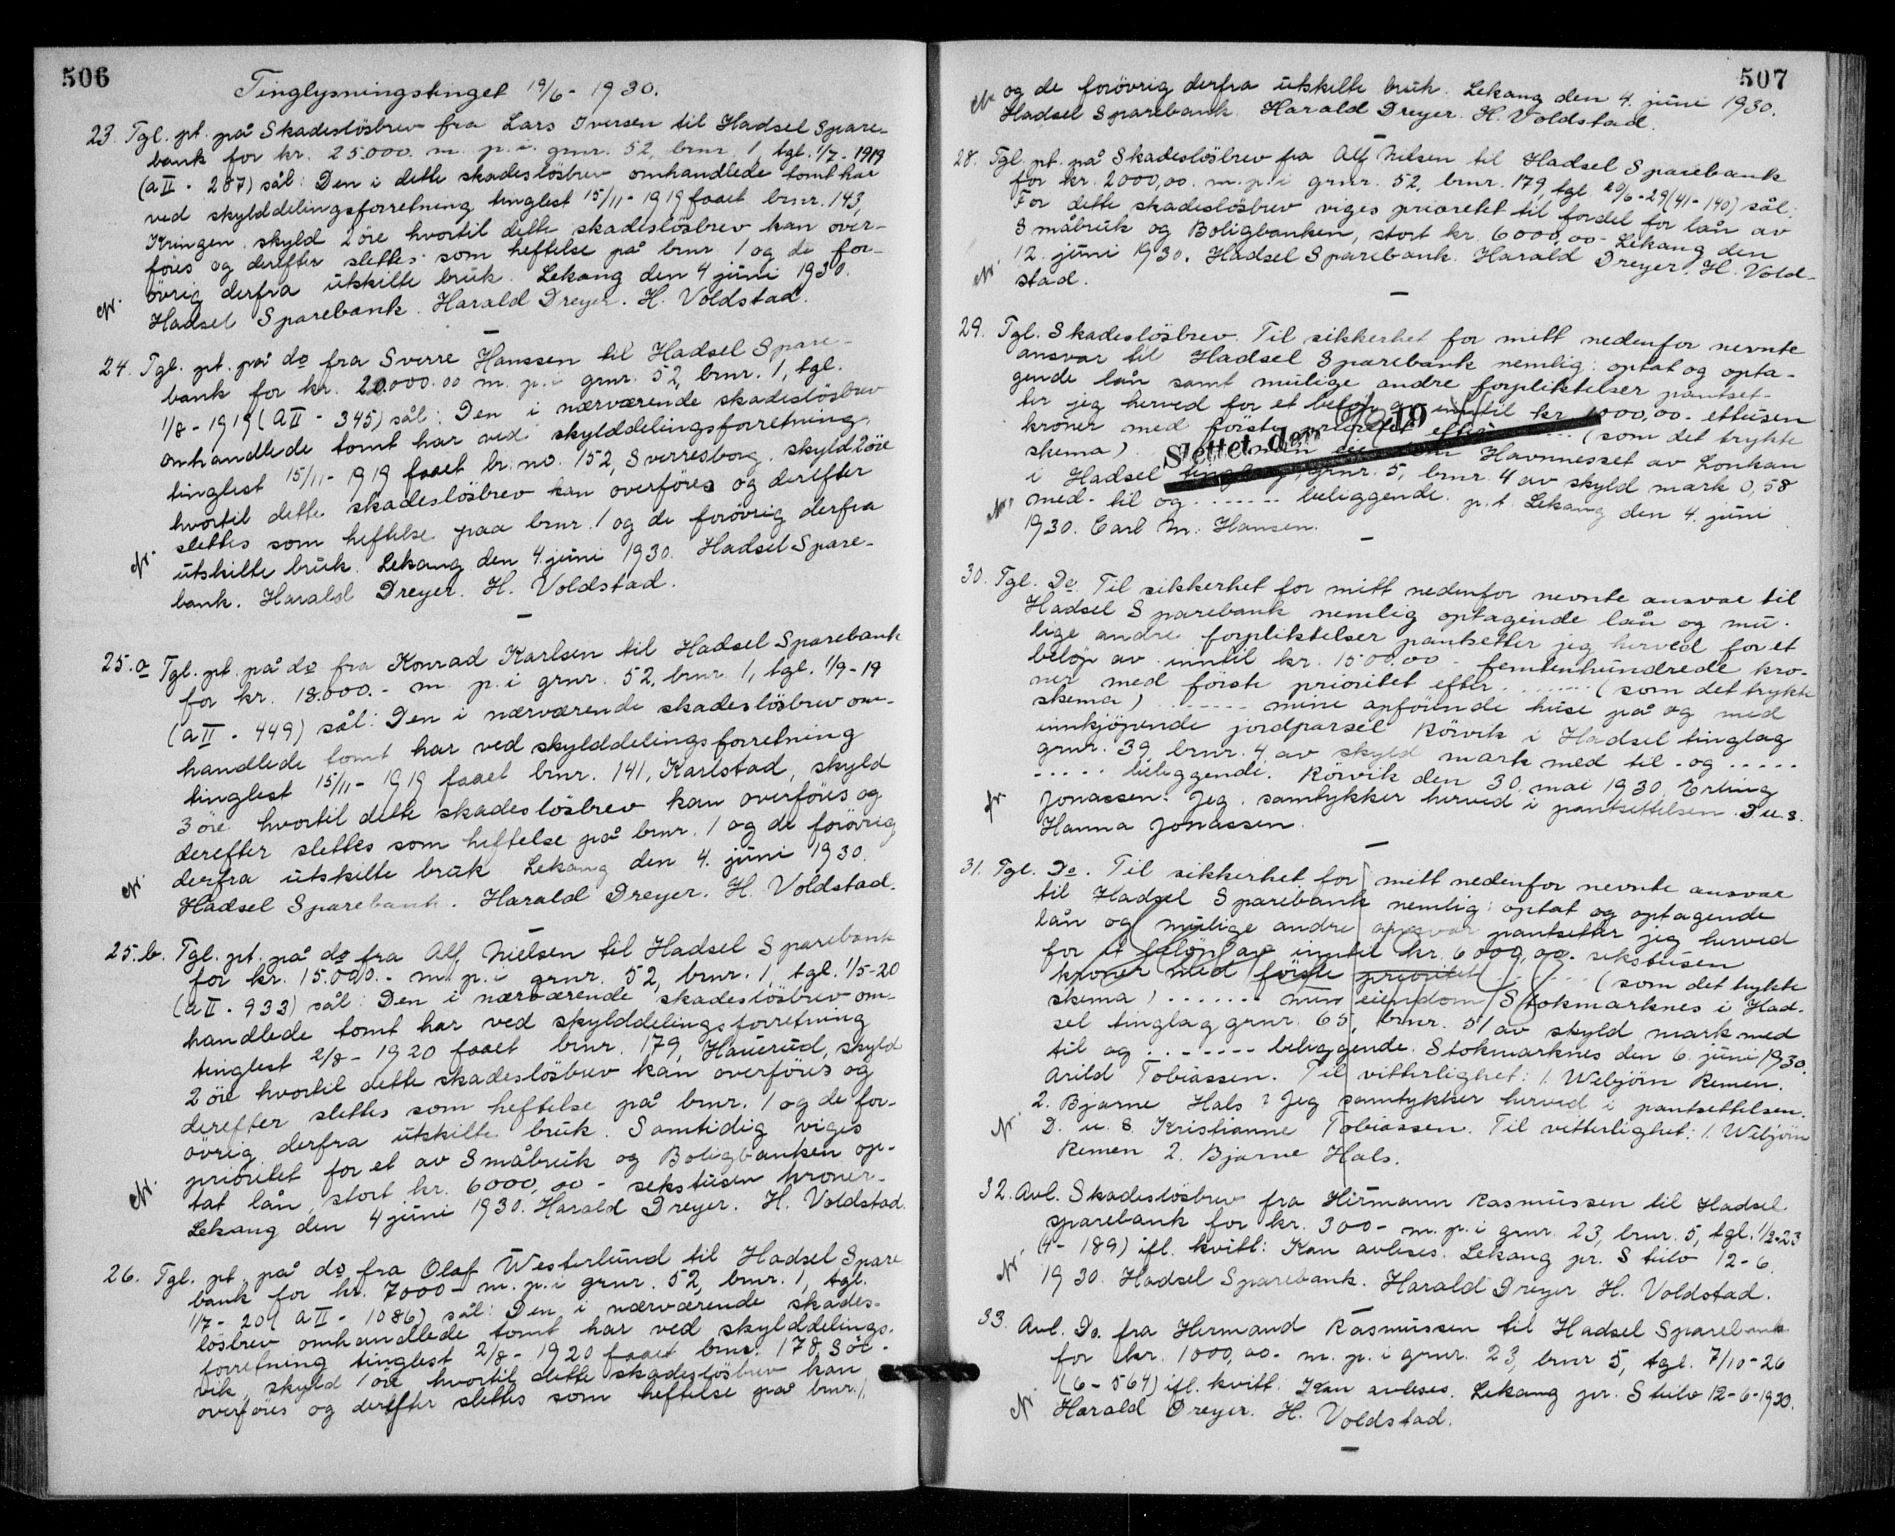 506
Tinglysningstinget 19/6 - 1930.
23. Tgl. pt. på Skadeslösbrev fra Lars Iversen til Hadsel Spare-
bank for kr. 25.000. m. p. i. grnr. 52, brnr. 1, tgl. 1/7 - 1919
(a II - 287) sål: Den i dette skadeslösbrev omhandlede tomt har
ved skylddelingsforretning tinglest 15/11 - 1919 faaet brnr. 143,
Kringen, skyld 2 öre hvortil dette skadeslösbrev kan over-
föres og derefter slettes som heftelse på brnr. 1 og de for-
övrig derfra utskilte bruk. Lekang den 4 juni 1930.
Hadsel Sparebank. Harald Dreyer. H. Voldstad.
24. Tgl. pt. på do fra Sverre Hanssen til Hadsel Spare-
bank for kr. 20.000.00 m. p. i grnr. 52, brnr. 1, tgl.
1/8 - 1919 (a II - 345) sål: Den i nærværende skadeslösbrev
omhandlede tomt har ved skylddelingsforretning
tinglest 15/11 - 1919 faaet br. no. 152, Sverresborg, skyld 2 öre
hvortil dette skadeslösbrev kan overföres og derefter
slettes som heftelse paa brnr. 1 og de forövrig derfra
utskilte bruk. Lekang den 4. juni 1930. Hadsel Spare-
bank. Harald Dreyer. H. Voldstad.
25. a Tgl. pt. på do fra Konrad Karlsen til Hadsel Sparebank
for kr. 18.000.- m. p. i grnr. 52, brnr. 1, tgl. 1/9 - 19
(a II - 449) sål: Den i nærværende skadeslösbrev om-
handlede tomt har ved skylddelingsforretning
tinglest 15/11 - 1919 faaet brnr. 141, Karlstad, skyld
3 öre hvortil dette skadeslösbrev kan overföres og
derefter slettes som heftelse på brnr. 1 og de forövrig
derfra utskilte bruk Lekang den 4. juni 1930.
Hadsel Sparebank. Harald Dreyer. H. Voldstad.
25. b. Tgl. pt. på do fra Alf Nielsen til Hadsel Sparebank
for kr. 15.000.- m. p. i grnr. 52, brnr. 1, tgl. 1/5 - 20
(a II - 933) sål: Den i nærværende skadeslösbrev om-
handlede tomt har ved skylddelingsforretning
tinglest 2/8 - 1920 faaet brnr. 179, Hauerud, skyld
2 öre hvortil dette skadeslösbrev kan overföres og
derefter slettes som heftelse på brnr. 1 og de for-
övrig derfra utskilte bruk. Samtidig viges
prioritet for et av Småbruk og Boligbanken op-
tat lån, stort kr. 6000,00 - sekstusen kroner.
Lekang den 4 juni 1930. Harald Dreyer. H. Voldstad.
26. Tgl. pt. på do fra Olaf Westerlund til Hadsel Spare
bank for kr. 7000 - m. p. i grnr. 52, brnr. 1, tgl.
1/7 - 20 (a II - 1086) sål: Den i nærværende skades-
lösbrev omhandlede tomt har ved skylddelings-
forretning tinglest 2/8 - 1920 faaet brnr. 178, Sör-
vik, skyld 1 öre hvortil dette skadeslösbrev kan
overföres og derefter slettes som heftelse på brnr. 1
507
og de forövrig derfra utskilte bruk. Lekang den 4. juni 1930.
Hadsel Sparebank. Harald Dreyer. H. Voldstad.
28. Tgl. pt. på Skadeslösbrev fra Alf Nilsen til Hadsel Sparebank
for kr. 2000,00. m. p. i grnr. 52, brnr. 179, tgl 20/6 - 29 (41 - 140) sål:
For dette skadeslösbrev viges prioritet til fordel for lån av
Småbruk og Boligbanken, stort kr. 6000,00 - Lekang den
12. juni 1930. Hadsel Sparebank. Harald Dreyer. H. Vold-
stad.
29. Tgl. Skadeslösbrev. Til sikkerhet for mitt nedenfor nevnte
ansvar til Hadsel Sparebank nemlig: optat og opta-
gende lån samt mulige andre forpliktelser pantset-
ter jeg herved for et belöp av inntil kr. 1000,00 - ettusen
kroner med förste prioritet efter (som det trykte
skema) min eiendom Havnnesset av Lonkan
Slettet den 19
i Hadsel tinglag, grnr. 5, brnr. 4 av skyld mark 0,58
med til og ....... beliggende. p. t. Lekang den 4. juni
1930. Carl M. Hansen.
30. Tgl. Do. Til sikkerhet for mitt nedenfor nevnte ansvar til
Hadsel Sparebank nemlig optagende lån og mu-
lige andre forpliktelser pantsetter jeg herved for et
belöp av inntil kr. 1500.00 - femtenhundrede kro-
ner med förste prioritet efter ....... (som det trykte
skema) ....... mine opförende huse på og med
innkjöpende jordparsel Rörvik i Hadsel tinglag
grnr. 39 brnr. 4 av skyld mark med til - og .....
..... beliggende. Rörvik den 30. mai 1930. Erling
Jonassen. Jeg samtykker herved i pantsettelsen. D. u. s.
Hanna Jonassen.
31. Tgl. Do. Til sikkerhet for mitt nedenfor nevnte ansvar
til Hadsel Sparebank nemlig: optat og optagende
lån og mulige andre ansvar pantsetter jeg herved
for et belöp av inntil kr. 6000,00 - sekstusen
kroner med förste prioritet (som det trykte
skema) ....... min eiendom Stokmarknes i Had-
sel tinglag grnr. 65, brnr. 51 av skyld mark med
til og ....... beliggende. Stokmarknes den 6. juni 1930.
Arild Tobiassen. Til vitterlighet: 1. Webjörn Remen.
2. Bjarne Hals? Jeg samtykker herved i pantsettelsen.
D. u. s. Kristianne Tobiassen. Til vitterlighet: 1. Webjörn
Remen 2. Bjarne Hals.
32. Avl. Skadeslösbrev fra Hermann Rasmussen til Hadsel
sparebank for kr. 300 - m. p. i grnr. 23, brnr. 5, tgl. 1/2 - 23
(4 - 189) ifl. kvitt: Kan avleses. Lekang pr. Stilo 12 - 6.
1930. Hadsel Sparebank. Harald Dreyer H. Voldstad.
33. Avl. Do. fra Hermand Rasmussen til Hadsel Sparebank
for kr. 1000,00 - m. p. i grnr. 23, brnr 5, tgl. 7/10 - 26
(6 - 564) ifl. kvitt: Kan avleses. Lekang pr. Stilo 12 - 6 - 1930.
Harald Dreyer. H. Voldstad.